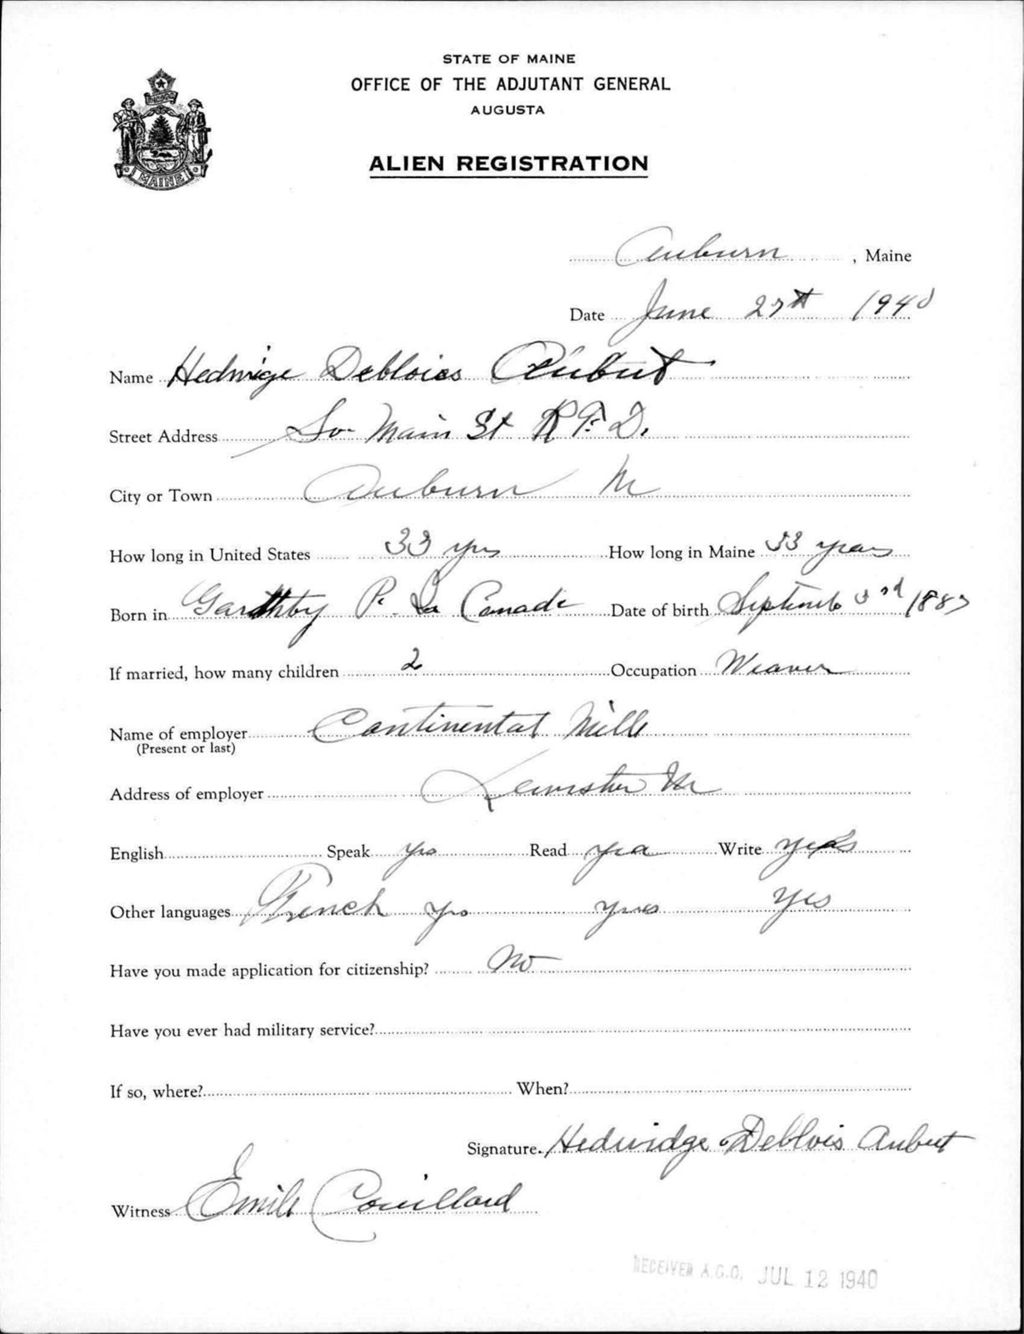 STATE OF MAINE
OFFICE OF THE ADJUTANT GENERAL
AUGUSTA
ALIEN REGISTRATION
MAINE
Auburn, Maine
Date June 27th 1940
Name Hedwige Deblois Aubut
Street Address So Main St R.F.D.
City or Town Auburn Me
How long in United States 33 yrs How long in Maine 33 years
Born in Garthby P. Canada Date of birth Septemb 3rd 1887
If married, how many children 2 Occupation Weaver
Name of employer Continental Mill
(Present or last)
Address of employer Lewiston Me
English Speak yes Read yea Write yes
Other languages French yes yes yes
Have you made application for citizenship? No
Have you ever had military service?
If so, where? When?
Signature Hedwidge Deblois Aubut
Witness Emile Couillard
RECEIVED A.G.O. JUL 12 1940